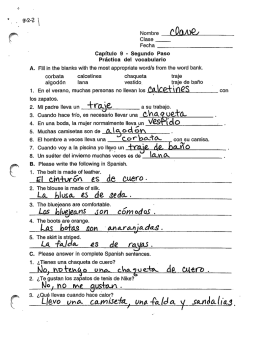 9-2-2
Nombre clave
Clase
Fecha
Capítulo 9 - Segundo Paso
Práctica del vocabulario
A. Fill in the blanks with the most appropriate word/s from the word bank.
corbata calcetines chaqueta traje
algodón lana vestido traje de baño
1. En el verano, muchas personas no llevan los calcetines con
los zapatos.
2. Mi padre lleva un traje a su trabajo.
3. Cuando hace frío, es necesario llevar una chaqueta.
4. En una boda, la mujer normalmente lleva un vestido
5. Muchas camisetas son de algodón.
6. El hombre a veces lleva una corbata con su camisa.
7. Cuando voy a la piscina yo llevo un traje de baño.
8. Un suéter del invierno muchas veces es de lana.
B. Please write the following in Spanish.
1. The belt is made of leather.
El cinturón es de cuero.
2. The blouse is made of silk.
La blusa es de seda.
3. The bluejeans are comfortable.
Los bluejeans son cómodos.
4. The boots are orange.
Las botas son anaranjadas.
5. The skirt is striped.
La falda es de rayas.
C. Please answer in complete Spanish sentences.
1. ¿Tienes una chaqueta de cuero?
No, no tengo una chaqueta de cuero.
2. ¿Te gustan los zapatos de tenis de Nike?
No, no me gustan.
3. ¿Qué llevas cuando hace calor?
Llevo una camiseta, una falda y sandalias.